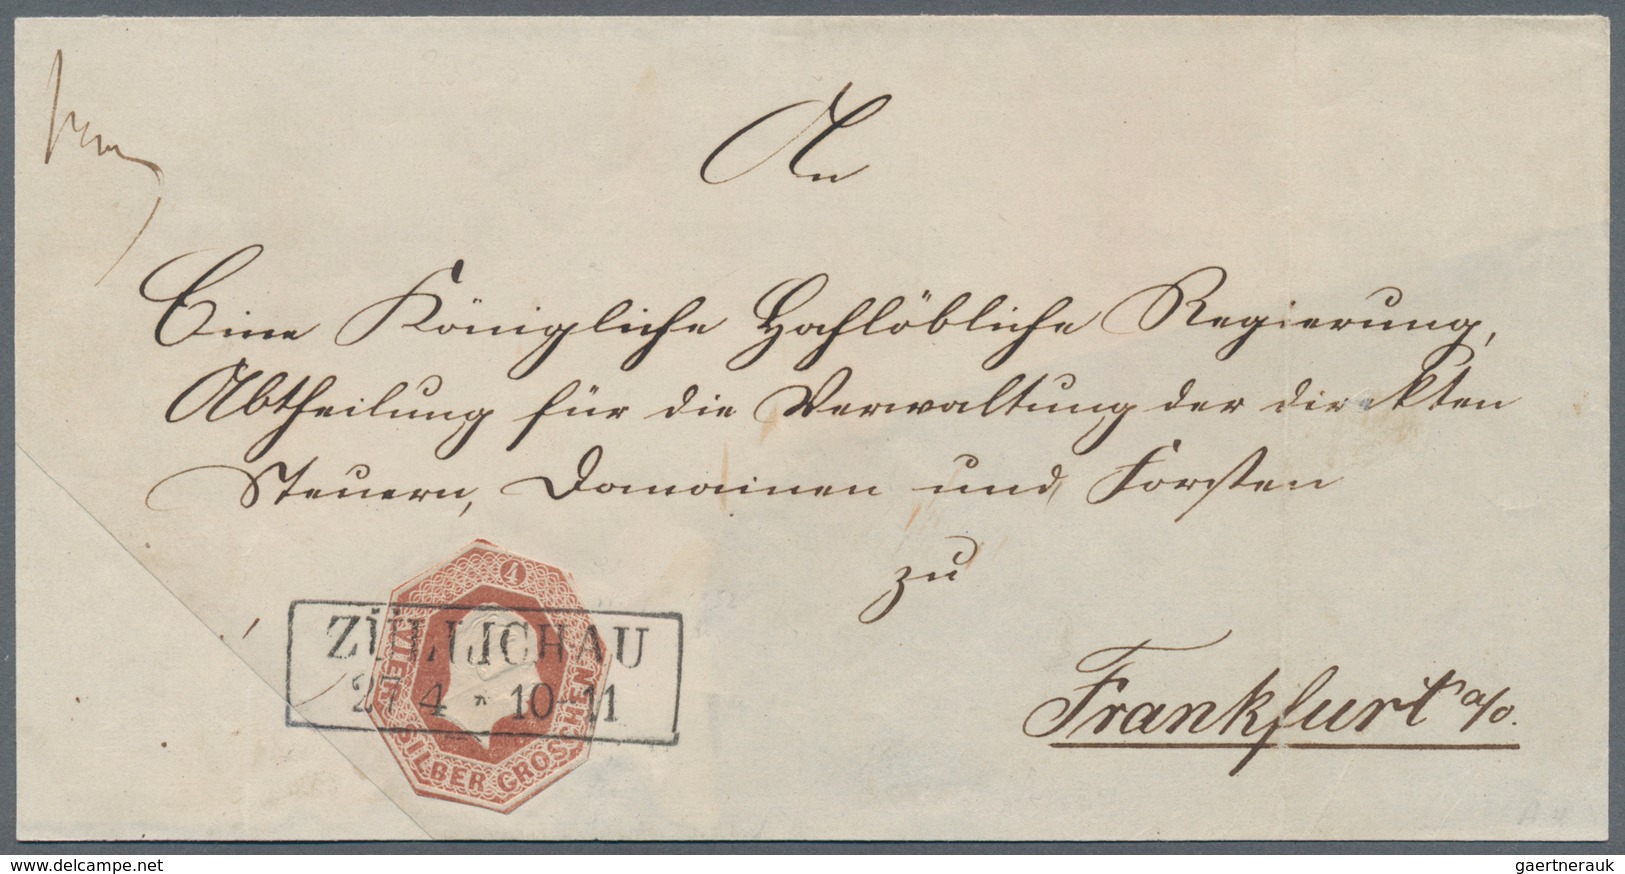 An
Eine Königliche Hochlöbliche Regierung,
Abtheilung für die Verwaltung der direkten
Steuern, Domainen und Forsten
zu
Frankfurt a/O.
4
VIER SILBER GROSCHEN
ZÜLLICHAU
27 4 * 10-11
www.delcampe.net
gaertnerauk